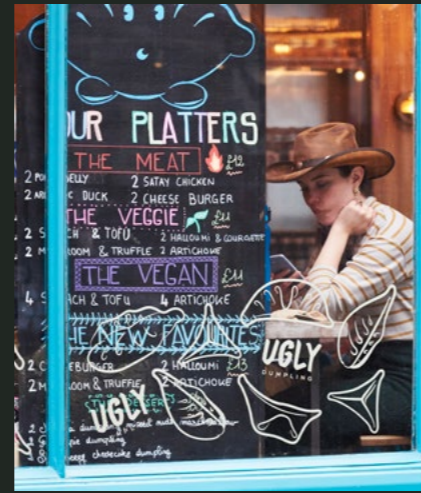 OUR PLATTERS
THE MEAT £12
2 SATAY CHICKEN
DUCK 2 CHEESE BURGER
THE VEGGIE £11
& TOFU 2 HALLOUMI & COURGETTE
2 M OOM & TRUFFLE 2 ARTICHOKE
THE VEGAN £11
4 S ACH & TOFU 4 ARTICHOKE
THE NEW FAVOURITES
2 C EBURGER 2 HALLOUMI £13
2 M OOM & TRUFFLE 2 ARTICHOKE
UGLY
DUMPLING
DESSERTS
UGLY
dumpling
pie dumpling
cheesecake dumpling